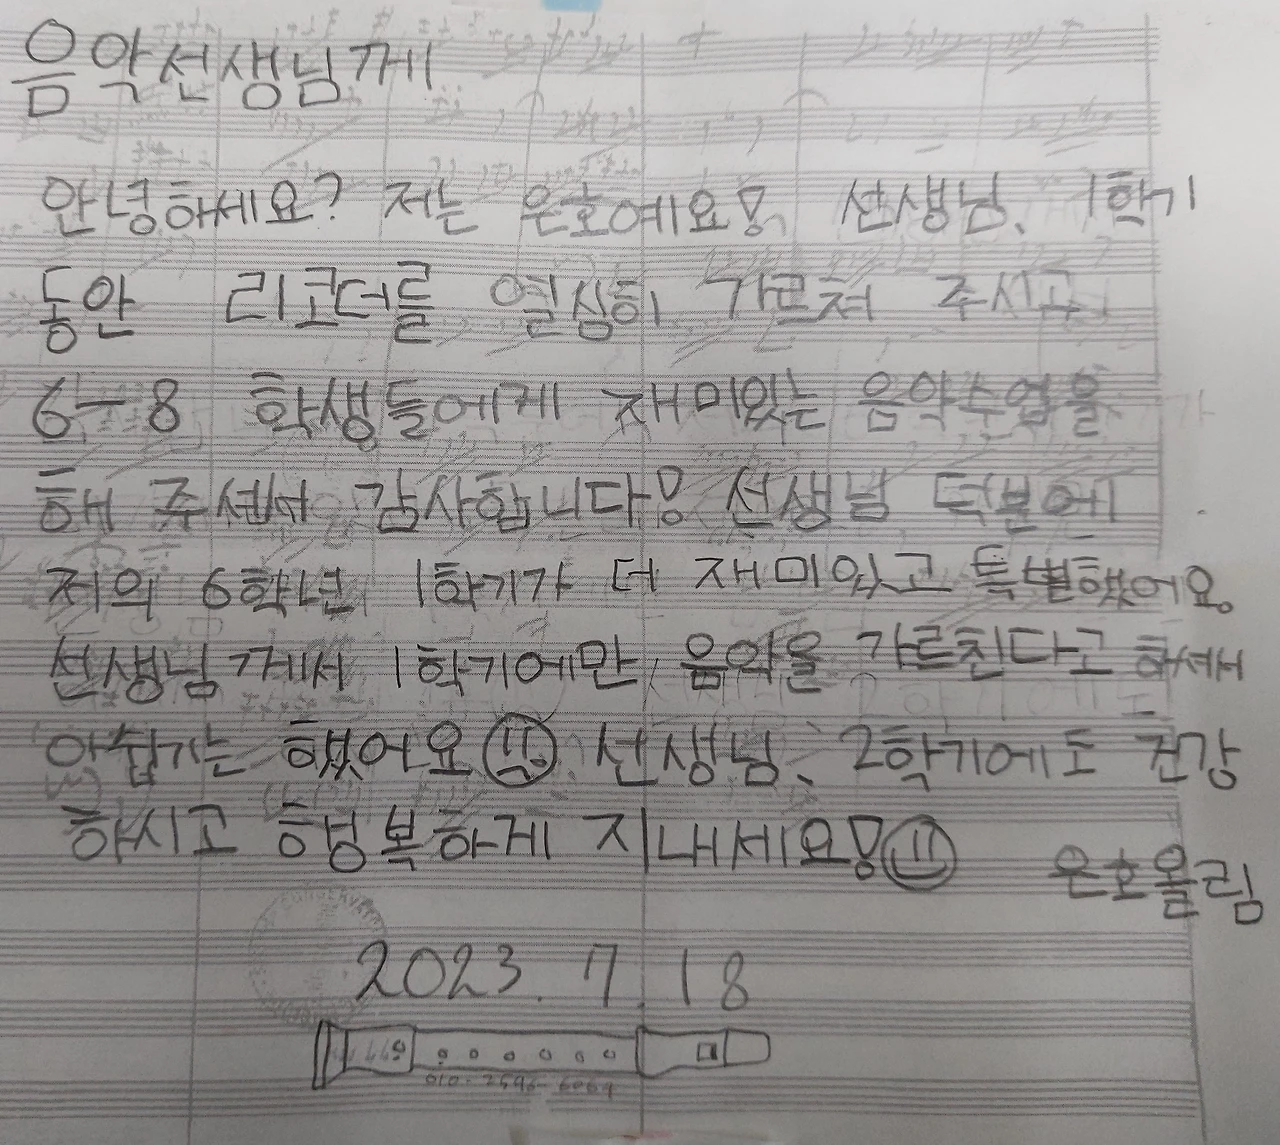 음악선생님께
안녕하세요? 저는 은호예요! 선생님, 1학기
동안 리코더를 열심히 가르쳐 주시고
6-8 학생들에게 재미있는 음악수업을
해 주셔서 감사합니다! 선생님 덕분에
저의 6학년 1학기가 더 재미있고 특별했어요.
선생님께서 1학기에만 음악을 가르친다고 하셔서
아쉽기는 했어요 선생님, 2학기에도 건강
하시고 행복하게 지내세요!
은호올림
2023. 7. 18